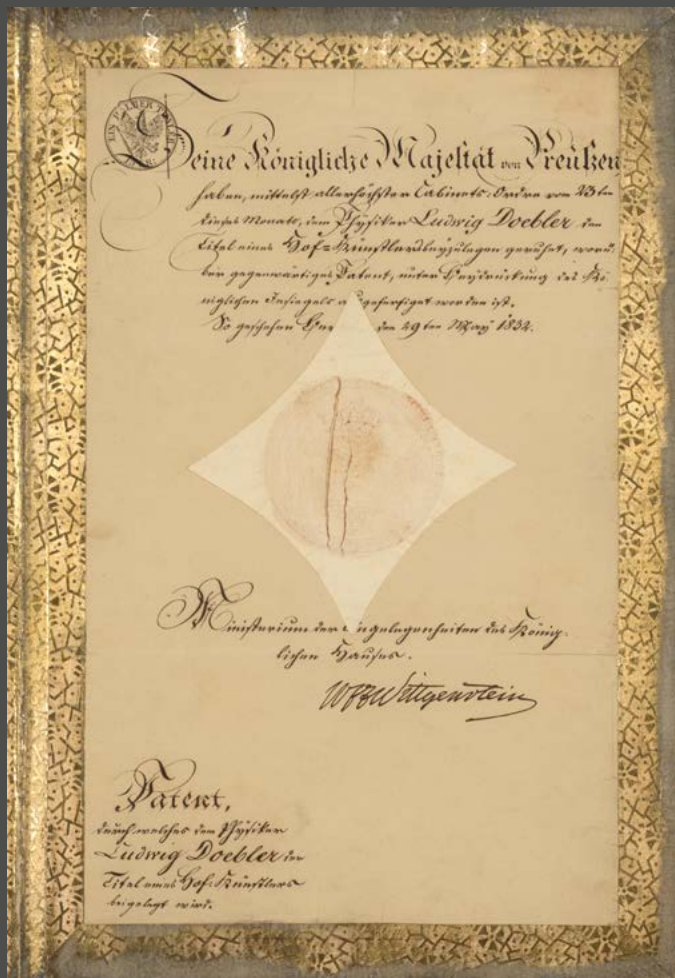 Seine Königliche Majestät von Preußen
haben, mittelst allerhöchster Cabinets-Ordre vom 23ten
dieses Monats, dem Physiker Ludwig Doebler den
Titel eines Hof-Künstlers beyzulegen geruhet, worü-
ber gegenwärtiges Patent, unter Beydrückung des Kö-
niglichen Insiegels ausgefertiget worden ist.
So geschehen den 29ten May 1832.
Ministerium der Angelegenheiten des König-
lichen Hauses.
Wittgenstein
Patent,
durch welches dem Physiker
Ludwig Doebler der
Titel eines Hof-Künstlers
beigelegt wird.